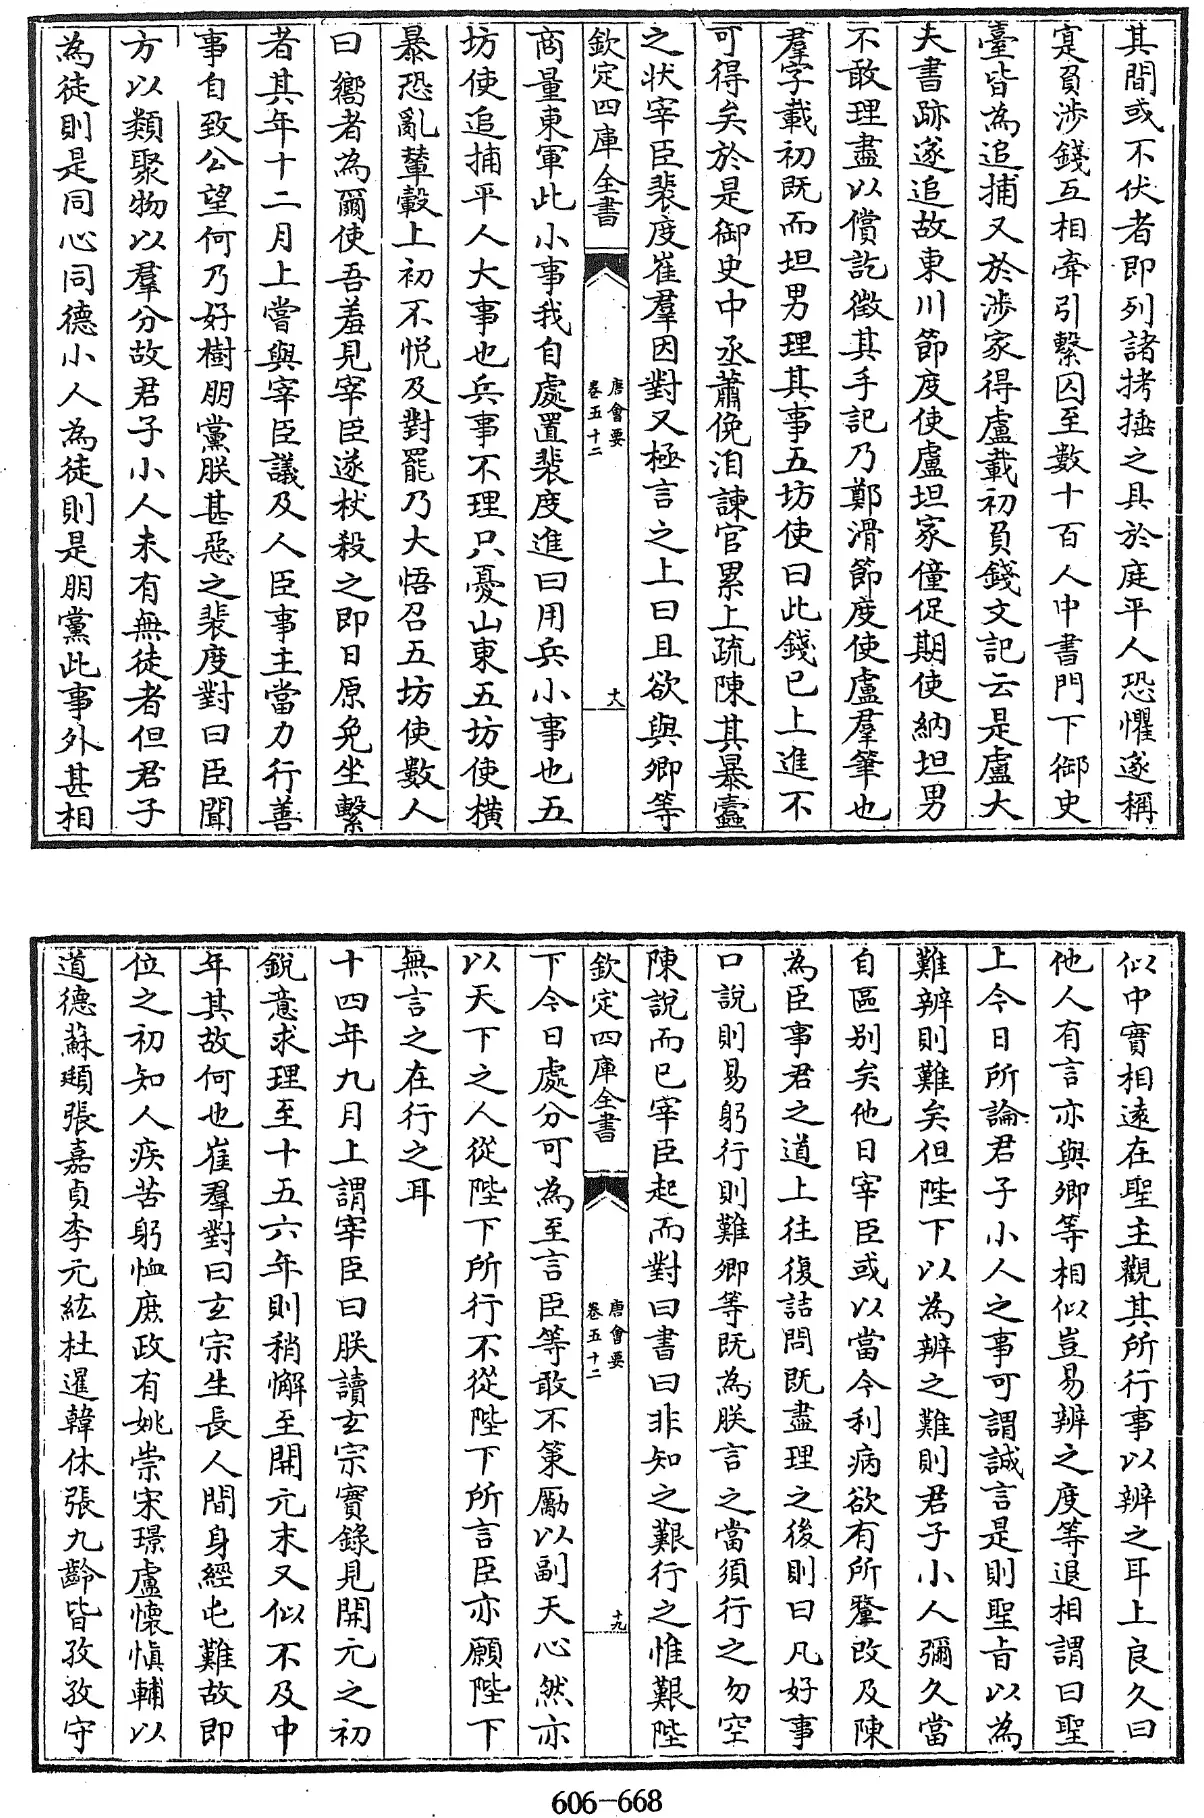 其間或不伏者即列諸拷捶之具於庭平人恐懼遂稱
寔負涉錢互相牽引繫囚至數十百人中書門下御史
臺皆為追捕又於涉家得盧載初負錢文記云是盧大
夫書跡遂追故東川節度使盧坦家僮促期使納坦男
不敢理盡以償訖徵其手記乃鄭滑節度使盧羣筆也
羣字載初既而坦男理其事五坊使曰此錢已上進不
可得矣於是御史中丞蕭俛洎諫官累上疏陳其暴蠹
之狀宰臣裴度崔羣因對又極言之上曰且欲與卿等
欽定四庫全書
唐會要
卷五十二
大
商量東軍此小事我自處置裴度進曰用兵小事也五
坊使追捕平人大事也兵事不理只憂山東五坊使橫
暴恐亂輦轂上初不悦及對罷乃大悟召五坊使數人
曰嚮者為爾使吾羞見宰臣遂杖殺之即日原免坐繫
者其年十二月上嘗與宰臣議及人臣事主當力行善
事自致公望何乃好樹朋黨朕甚惡之裴度對曰臣聞
方以類聚物以羣分故君子小人未有無徒者但君子
為徒則是同心同德小人為徒則是朋黨此事外甚相
似中實相遠在聖主觀其所行事以辨之耳上良久曰
他人有言亦與卿等相似豈易辨之度等退相謂曰聖
上今日所論君子小人之事可謂誠言是則聖旨以為
難辨則難矣但陛下以為辨之難則君子小人彌久當
自區别矣他日宰臣或以當今利病欲有所釐改及陳
為臣事君之道上往復詰問既盡理之後則曰凡好事
口說則易躬行則難卿等既為朕言之當須行之勿空
陳說而已宰臣起而對曰書曰非知之艱行之惟艱陛
欽定四庫全書
唐會要
卷五十二
十九
下今日處分可為至言臣等敢不策勵以副天心然亦
以天下之人從陛下所行不從陛下所言臣亦願陛下
無言之在行之耳
十四年九月上謂宰臣曰朕讀玄宗實錄見開元之初
銳意求理至十五六年則稍懈至開元末又似不及中
年其故何也崔羣對曰玄宗生長人間身經屯難故即
位之初知人疾苦躬恤庶政有姚崇宋璟盧懷慎輔以
道德蘇頲張嘉貞李元紘杜暹韓休張九齡皆孜孜守
606-668